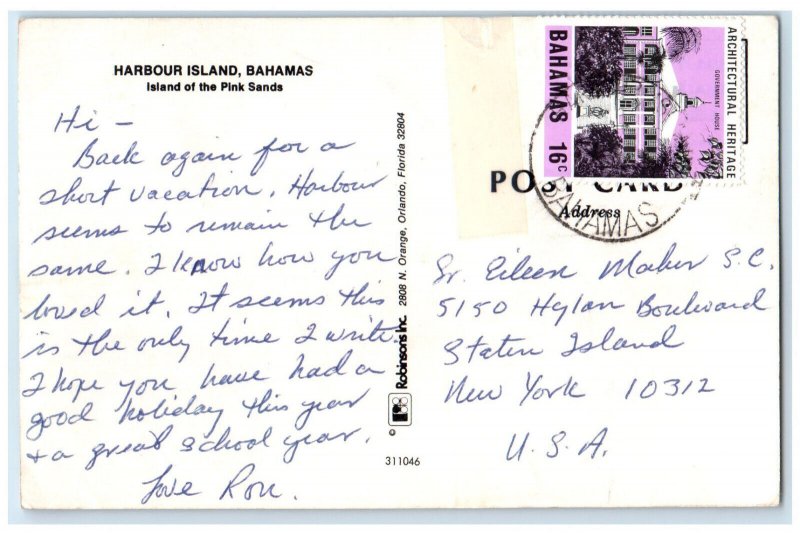 HARBOUR ISLAND, BAHAMAS
Island of the Pink Sands
Hi -
Back again for a
short vacation. Harbour
seems to remain the
same. I know how you
loved it. It seems this
is the only time I write.
I hope you have had a
good holiday this year
+ a great school year.
Love Ron.
Robinsons Inc. 2808 N. Orange, Orlando, Florida 32804
©
311046
BAHAMAS 16c
ARCHITECTURAL HERITAGE
GOVERNMENT HOUSE
POST CARD
Address
BAHAMAS
Sr. Eileen Maher S.C.
5150 Hylan Boulevard
Staten Island
New York 10312
U.S.A.